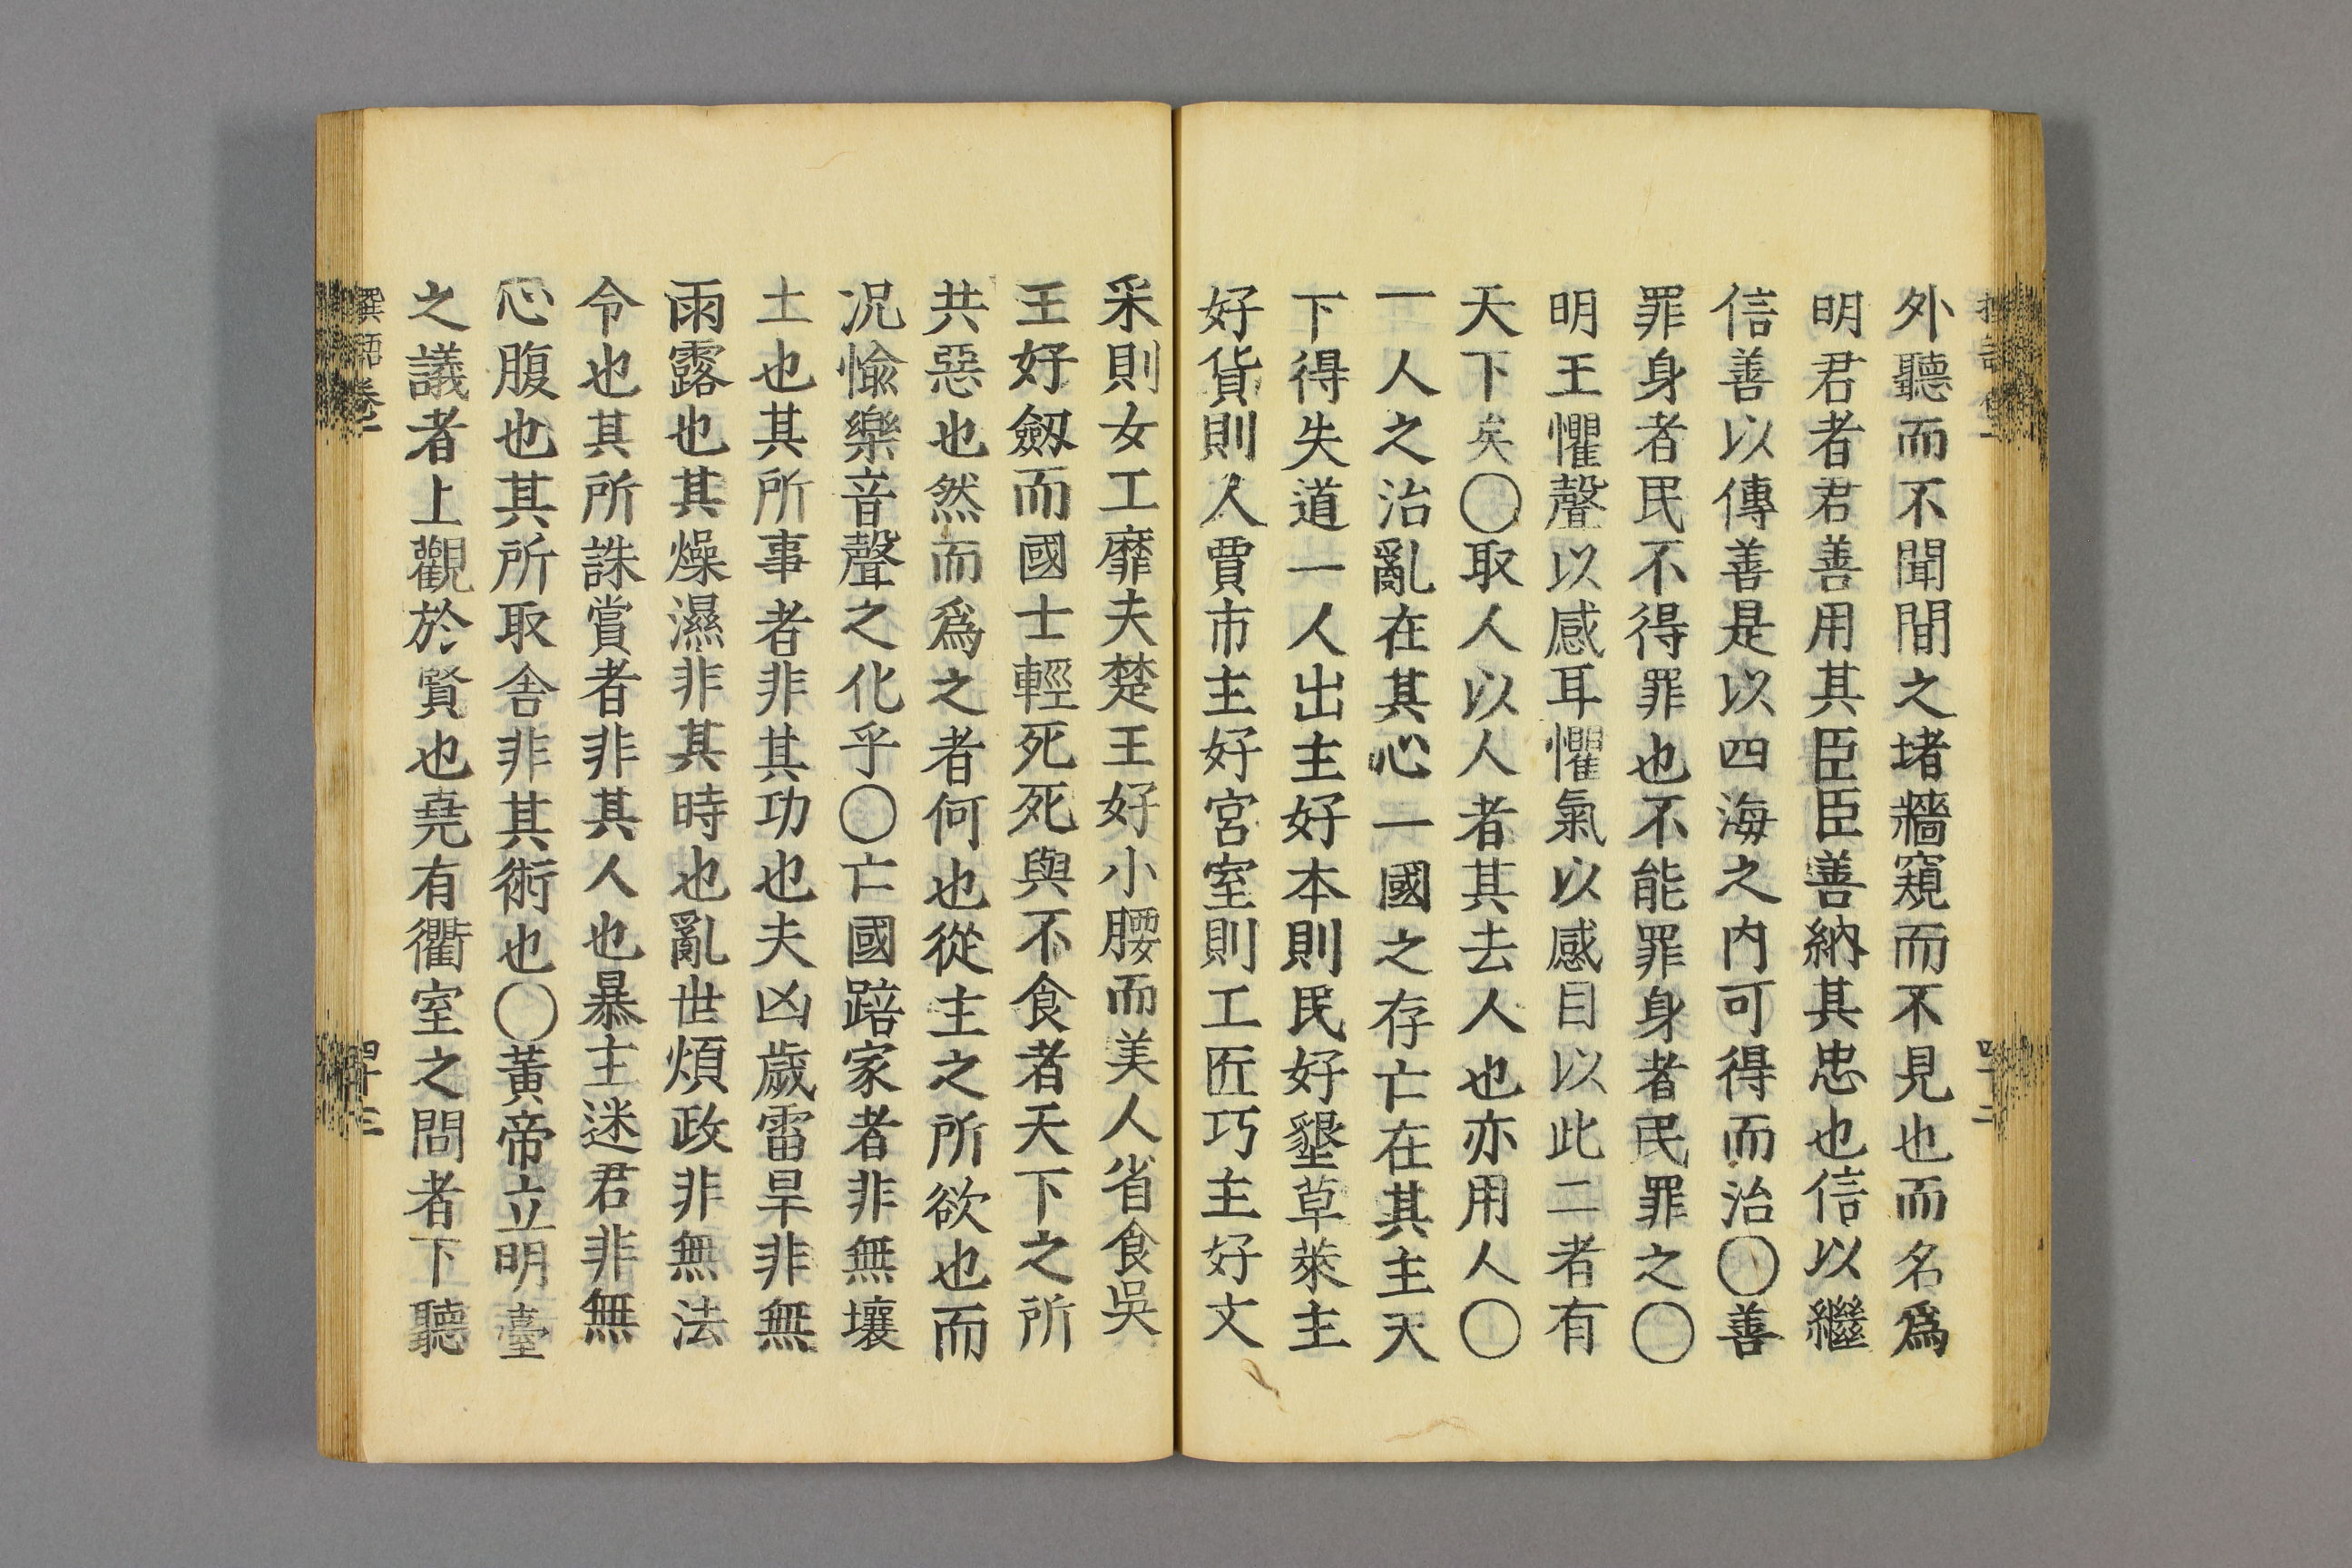 外聽而不聞間之堵牆窺而不見也而名爲
明君者君善用其臣臣善納其忠也信以繼
信善以傳善是以四海之内可得而治〇善
罪身者民不得罪也不能罪身者民罪之〇
明王懼聲以感耳懼氣以感目以此二者有
天下矣〇取人以人者其去人也亦用人〇
一人之治亂在其心一國之存亡在其主天
下得失道一人出主好本則民好墾草萊主
好貨則人賈市主好宮室則工匠巧主好文
采則女工靡夫楚王好小腰而美人省食吳
王好劔而國士輕死死與不食者天下之所
共惡也然而爲之者何也從主之所欲也而
況愉樂音聲之化乎〇亡國踣家者非無壤
土也其所事者非其功也夫凶歲雷旱非無
雨露也其燥濕非其時也亂世煩政非無法
令也其所誅賞者非其人也暴主迷君非無
心腹也其所取舍非其術也〇黃帝立明臺
之議者上觀於賢也堯有衢室之問者下聽
語 卷二